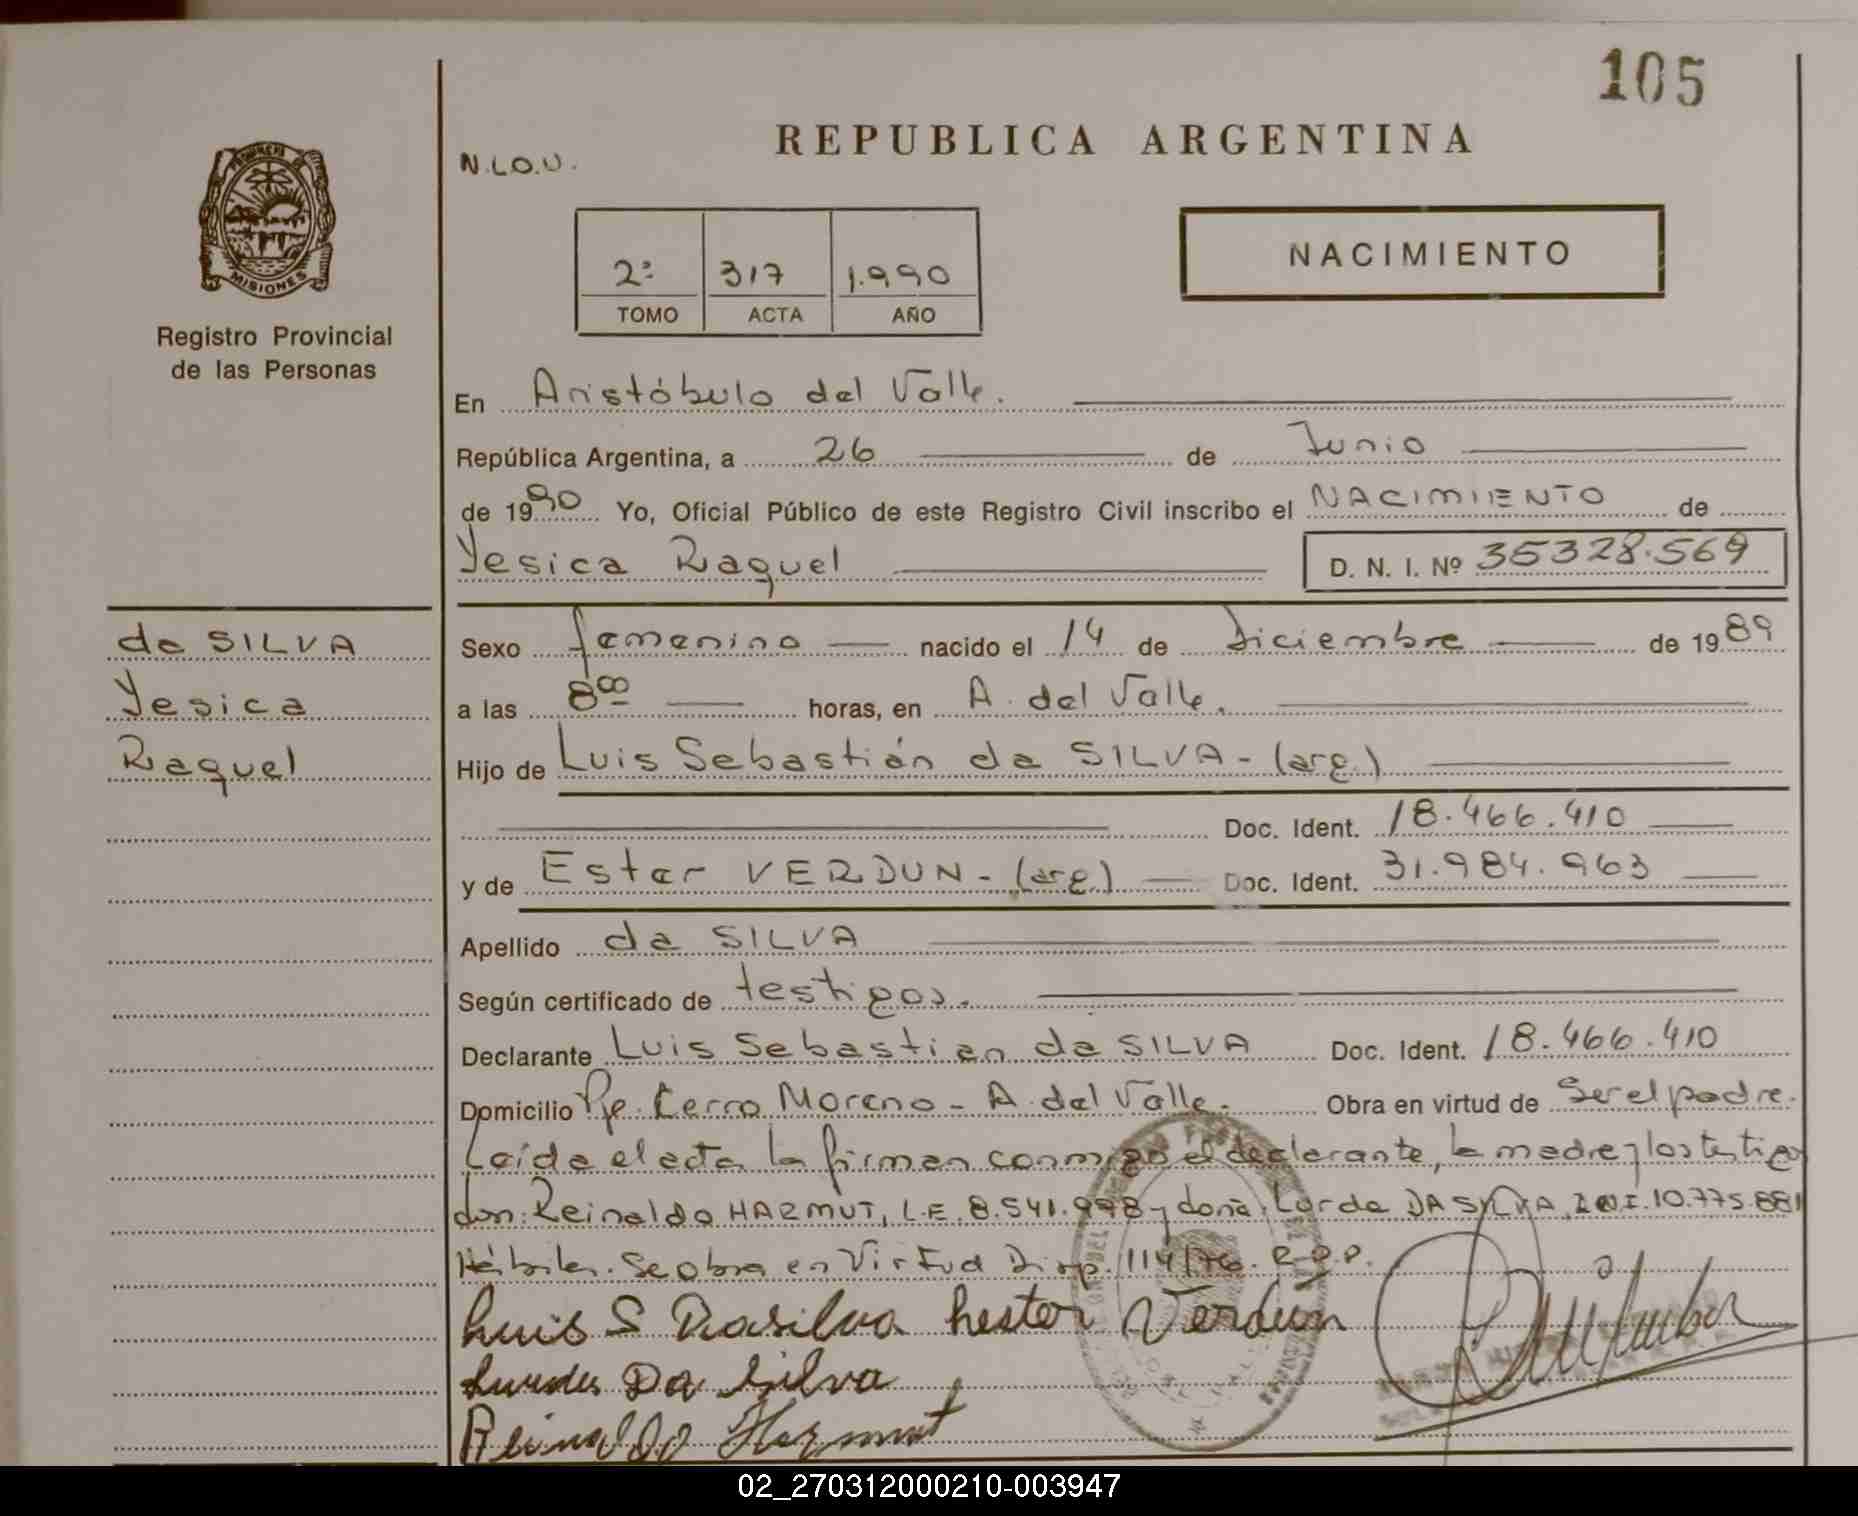 105
REPUBLICA ARGENTINA
N.L.O.U.
PROVINCIA DE
MISIONES
Registro Provincial
de las Personas
2º 317 1.990
TOMO ACTA AÑO
NACIMIENTO
En Aristóbulo del Valle.
República Argentina, a 26 de Junio
de 1990 Yo, Oficial Público de este Registro Civil inscribo el NACIMIENTO de
Yesica Raquel D. N. I. Nº 35328.569
da SILVA
Yesica
Raquel
Sexo femenino nacido el 14 de Diciembre de 1989
a las 8⁰⁰ horas, en A. del Valle.
Hijo de Luis Sebastián da SILVA - (arg.)
Doc. Ident. 18.466.410
y de Ester VERDUN - (arg.) Doc. Ident. 31.984.963
Apellido da SILVA
Según certificado de testigos.
Declarante Luis Sebastian da SILVA Doc. Ident. 18.466.410
Domicilio Pje. Cerro Moreno - A. del Valle. Obra en virtud de Ser el padre.
Leída el acta la firman conmigo el declarante, la madre y los testigos
don: Reinaldo HARMUT, L.E. 8.541.998 y doña: Lurde DA SILVA, D.N.I. 10.775.881
Hábiles. Se obra en Virtud Disp. 114/76. R.P.P.
Luis S Dasilva hester Verdun
Lurdes Da Silva
Reinaldo Harmut
02_270312000210-003947